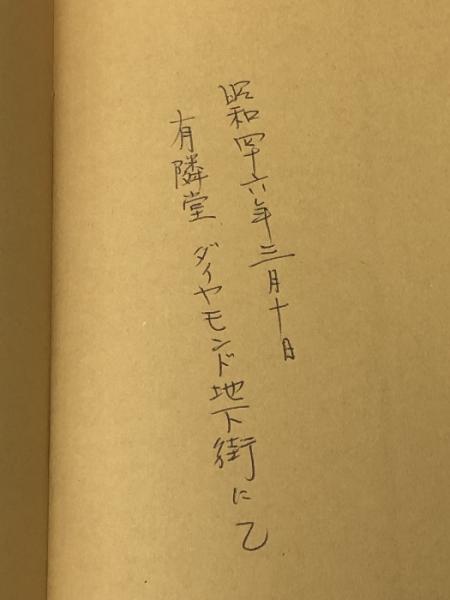 昭和四十六年三月十日
有隣堂 ダイヤモンド地下街にて